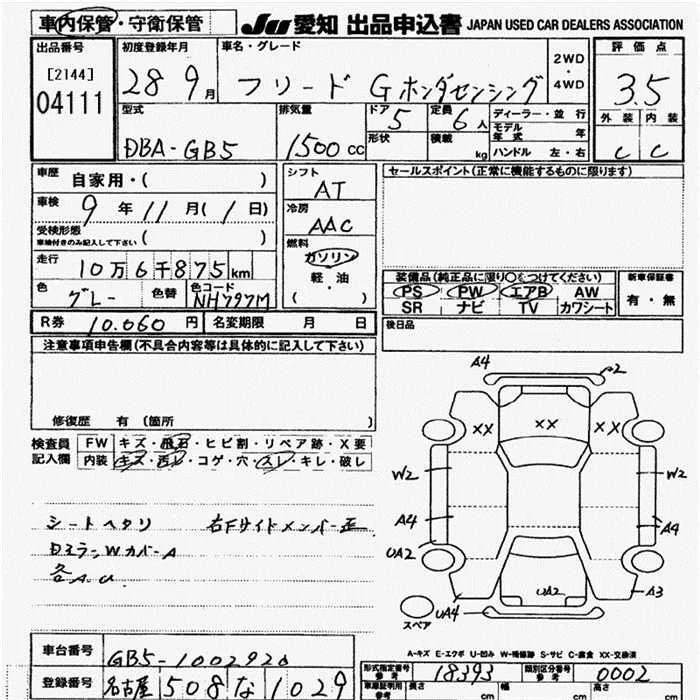 車内保管・守衛保管 JU 愛知 出品申込書 JAPAN USED CAR DEALERS ASSOCIATION
出品番号 初度登録年月 車名・グレード 2WD・4WD 評価点
[2144] 04111 28 9月 フリード G ホンダセンシング 3.5
型式 DBA-GB5 排気量 1500 CC ドア 5 形状 定員 6人 積載 kg ディーラー・並行 モデル年式 年 ハンドル 左・右 外装 内装
C C
車歴 自家用・( ) シフト AT セールスポイント(正常に機能するものに限ります)
車検 9年 11月(1日) 冷房 AAC
受検形態 車検付きのみ記入して下さい ( ) 燃料 ガソリン
走行 10万6千875km 軽・油 装備品(純正品に限り○をつけてください) 新車保証書
色 グレー 色替 色コード NH797M ( ) PS PW エアB AW 有・無
SR ナビ TV カワシート
R券 10.060円 名変期限 月 日 後日品
注意事項申告欄(不具合内容等は具体的に記入して下さい)
修復歴 有 (箇所 )
検査員 記入欄 FW キズ・飛石・ヒビ割・リペア跡・X要
内装 キズ・汚レ・コゲ・穴・スレ・キレ・破レ
シートヘタリ 右Fサイドメンバー正
DミラーWカバーA
各A.U
A4 A2
XX XX XX
W2 W2
A4 A4
UA2
UA2 A3
UA4
スペア
A-キズ E-エクボ U-凹み W-補修跡 S-サビ C-腐食 XX-交換済
車台番号 GB5-1002920 形式指定番号 参考 18393 類別区分番号 参考 0002
登録番号 名古屋 508 な 1029 車庫証明用 参考 長さ cm 幅 cm 高さ cm